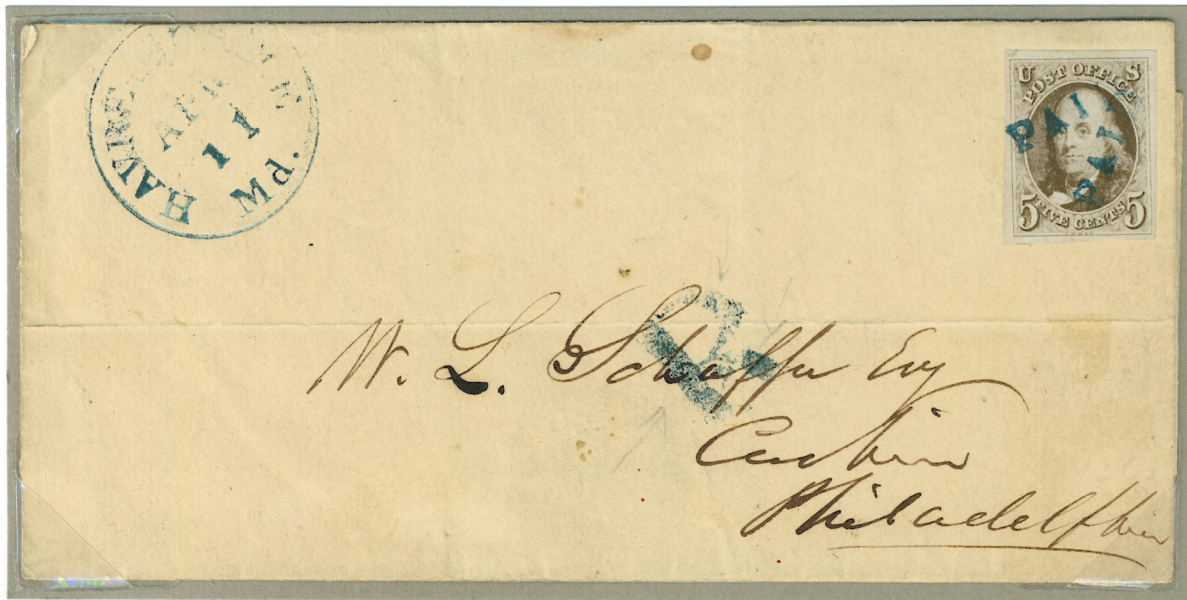 HAVRE
APR
11
Md.
U S
POST OFFICE
PAI
PAI
5 FIVE CENTS 5
W. L. Schaffer Esq
Cashier
Philadelphia